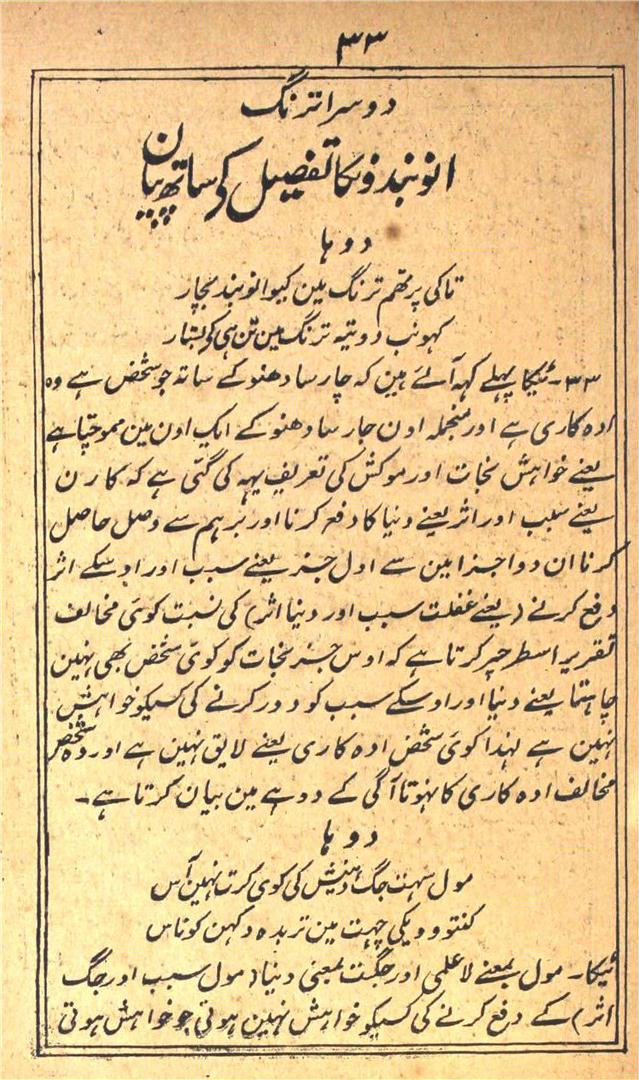 ۳۳
دوسرا ترنگ
انوبندونکا تفصیل کی ساتھ بیان
دوہا
تاکی پرتھم ترنگ مین کیو انوبند بچار
کہونب دوتیہ ترنگ مین تن ہی کو بستار
۳۳ - ٹیکا پہلے کہہ آئے ہین کہ چار سادھنو کے ساتہ جو شخص ہے وہ
ادہ کاری ہے اور منجملہ اون چار سادھنو کے ایک اون مین مموچتا ہے
یعنے خواہش نجات اور موکش کی تعریف یہہ کی گئی ہے کہ کارن
یعنے سبب اور اثر یعنے دنیا کا دفع کرنا اور برہم سے وصل حاصل
کرنا ان دو اجزا مین سے اول جز یعنے سبب اور اوسکے اثر
دفع کرنے (یعنے غفلت سبب اور دنیا اثر) کی نسبت کوئی مخالف
تقریر اسطرحپر کرتا ہے کہ اوس جز نجات کو کوئی شخص بھی نہین
چاہتا یعنے دنیا اور اوسکے سبب کو دور کرنے کی کسیکو خواہش
نہین ہے لہذا کوئی شخص ادہ کاری یعنے لایق نہین ہے اور وہ شخص
مخالف ادہ کاری کا نہوتا آگی کے دوہے مین بیان کرتا ہے ۔
دوہا
مول سہت جگ دہنش کی کوی کرت نہین آس
کنتو وویکی چہت مین تربدہ دکہن کو ناس
ٹیکا - مول بمعنے لاعلمی اور جگت بمعنی دنیا (مول سبب اور جگ
اثر) کے دفع کرنے کی کسیکو خواہش نہین ہوتی جو خواہش ہوتی